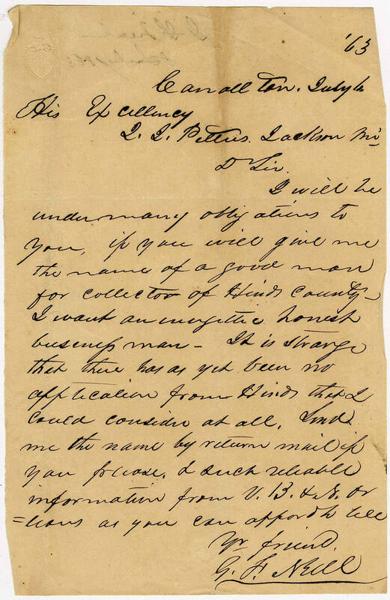 '63
Carrollton. July 6
His Excellency
J. J. Pettus. Jackson Mi
Dr Sir.
I will be
under many obligations to
you, if you will give me
the name of a good man
for collector of Hinds County –
I want an energetic honest
business man – It is strange
that there has as yet been no
application from Hinds that I
could consider at all. Send
me the name by return mail if
you please, & such reliable
information from V. B. &
as you can
Yr friend.
G. F. Neill